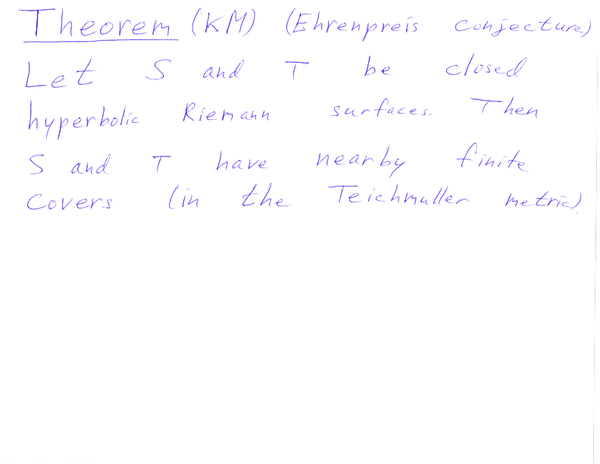 Theorem (KM) (Ehrenpreis conjecture)
Let S and T be closed
hyperbolic Riemann surfaces. Then
S and T have nearby finite
covers (in the Teichmuller metric)